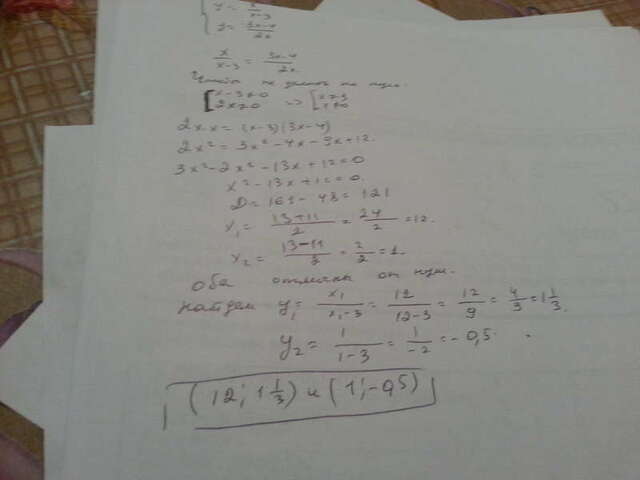 y = x/x-3
y = 3x-4/2x
x/x-3 = 3x-4/2x
на
x-3≠0 2x≠0 => x≠3 x≠0
2x·x = (x-3)(3x-4)
2x² = 3x² - 4x - 9x + 12.
3x² - 2x² - 13x + 12 = 0
x² - 13x + 12 = 0.
D = 169 - 48 = 121
x₁ = 13+11/2 = 24/2 = 12.
x₂ = 13-11/2 = 2/2 = 1.
Оба от нуля.
найдем y₁ = x₁/x₁-3 = 12/12-3 = 12/9 = 4/3 = 1 1/3.
y₂ = 1/1-3 = 1/-2 = -0,5.
(12; 1 1/3) и (1; -0,5)